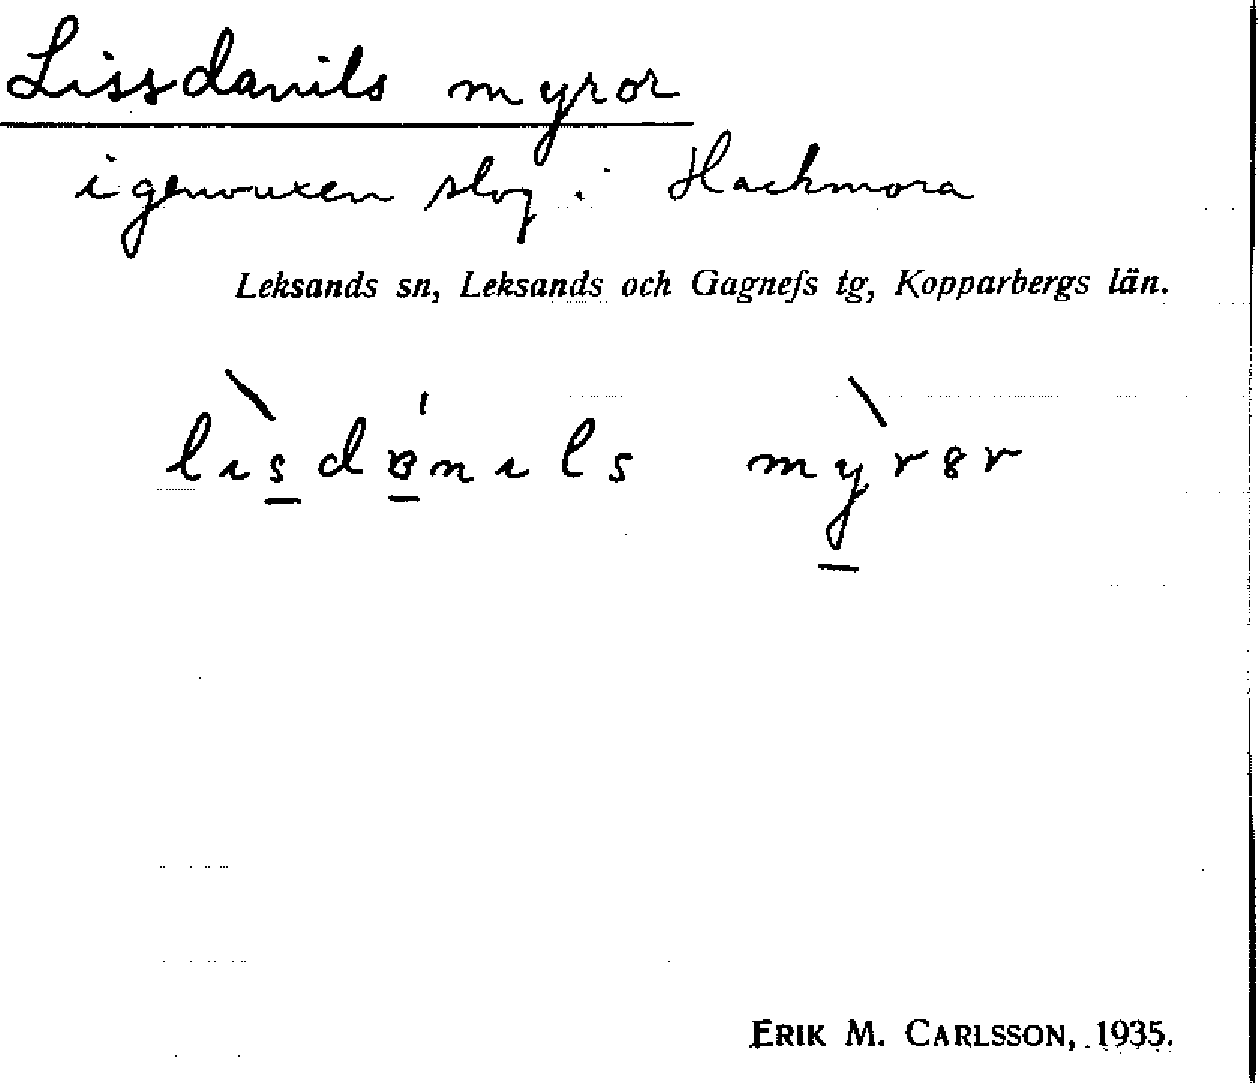 Lissdanils myror
igenvuxen slog i Hackmora
Leksands sn, Leksands och Gagnefs tg, Kopparbergs län.
lısdɐnıls myrȣr
ERIK M. CARLSSON, 1935.